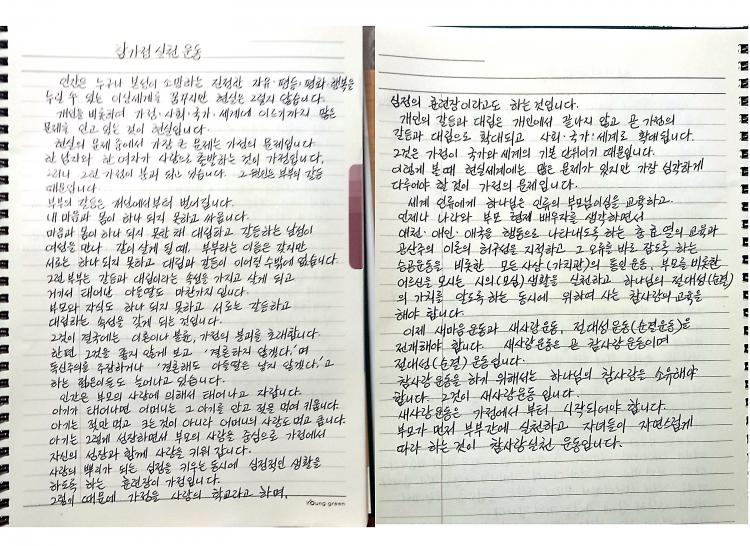 참가정 실천 운동
인간은 누구나 본심이 소망하는 진정한 자유·평등, 평화 행복을
누릴 수 있는 이상세계를 꿈꾸지만 현실은 그렇지 않습니다.
개인을 비롯하여 가정·사회·국가·세계에 이르기까지 많은
문제를 안고 있는 것이 현실입니다.
현실의 문제 중에서 가장 큰 문제는 가정의 문제입니다.
한 남자와 한 여자가 사랑으로 출발하는 것이 가정입니다.
그러나 그런 가정이 붕괴 되고 있습니다. 그 원인은 부부의 갈등
때문입니다.
부부의 갈등은 개인에서부터 벌어집니다.
내 마음과 몸이 하나 되지 못하고 싸웁니다.
마음과 몸이 하나 되지 못한 채 대립하고 갈등하는 남성이
여성을 만나 같이 살게 될 때, 부부라는 이름은 갖지만
서로는 하나 되지 못하고 대립과 갈등이 이어질 수밖에 없습니다.
그런 부부는 갈등과 대립이라는 속성을 가지고 살게 되고
거기서 태어난 아들딸도 마찬가지입니다.
부모와 자식도 하나 되지 못하고 서로는 갈등하고
대립하는 속성을 갖게 되는 것입니다.
그것이 결국에는 이혼이나 불륜, 가정의 붕괴를 초래합니다.
한편 그것을 좋지 않게 보고 '결혼하지 않겠다.'며
독신주의를 주장하거나 '결혼해도 아들딸은 낳지 않겠다.'고
하는 젊은이들도 늘어나고 있습니다.
인간은 부모의 사랑에 의해서 태어나고 자랍니다.
아기가 태어나면 어머니는 그 아기를 안고 젖을 먹여 키웁니다.
아기는 젖만 먹고 크는 것이 아니라 어머니의 사랑도 먹고 큽니다.
아기는 그렇게 성장하면서 부모의 사랑을 중심으로 가정에서
자신의 성장과 함께 사랑을 키워 갑니다.
사랑의 뿌리가 되는 심정을 키우는 동시에 심정적인 생활을
하도록 하는 훈련장이 가정입니다.
그렇기 때문에 가정을 사랑의 학교라고 하며,
Young green
심정의 훈련장이라고도 하는 것입니다.
개인의 갈등과 대립은 개인에서 끝나지 않고 곧 가정의
갈등과 대립으로 확대되고 사회·국가·세계로 확대됩니다.
그것은 가정이 국가와 세계의 기본 단위이기 때문입니다.
이렇게 볼 때 현실세계에는 많은 문제가 있지만 가장 심각하게
다루어야 할 것이 가정의 문제입니다.
세계 인류에게 하나님은 인류의 부모님이심을 교육하고,
언제나 나라와 부모 형제 배우자를 생각하면서
애천·애인·애국을 행동으로 나타내도록 하는 충효열의 교육과
공산주의 이론의 허구성을 지적하고 그 오류를 바로 잡도록 하는
승공운동을 비롯한 모든 사상(가치관)의 통일운동, 부모를 비롯한
어르신을 모시는 시의(모심)생활을 실천하고 하나님의 절대성(순결)
의 가치를 알도록 하는 동시에 위하여 사는 참사랑의 교육을
해야 합니다.
이제 새마음운동과 새사랑운동, 절대성운동(순결운동)을
전개해야 합니다. 새사랑운동은 곧 참사랑운동이며
절대성(순결) 운동입니다.
참사랑운동을 하기 위해서는 하나님의 참사랑을 소유해야
합니다. 그것이 새사랑운동 입니다.
새사랑운동은 가정에서 부터 시작되어야 합니다.
부모가 먼저 부부간에 실천하고 자녀들이 자연스럽게
따라 하는 것이 참사랑실천 운동입니다.